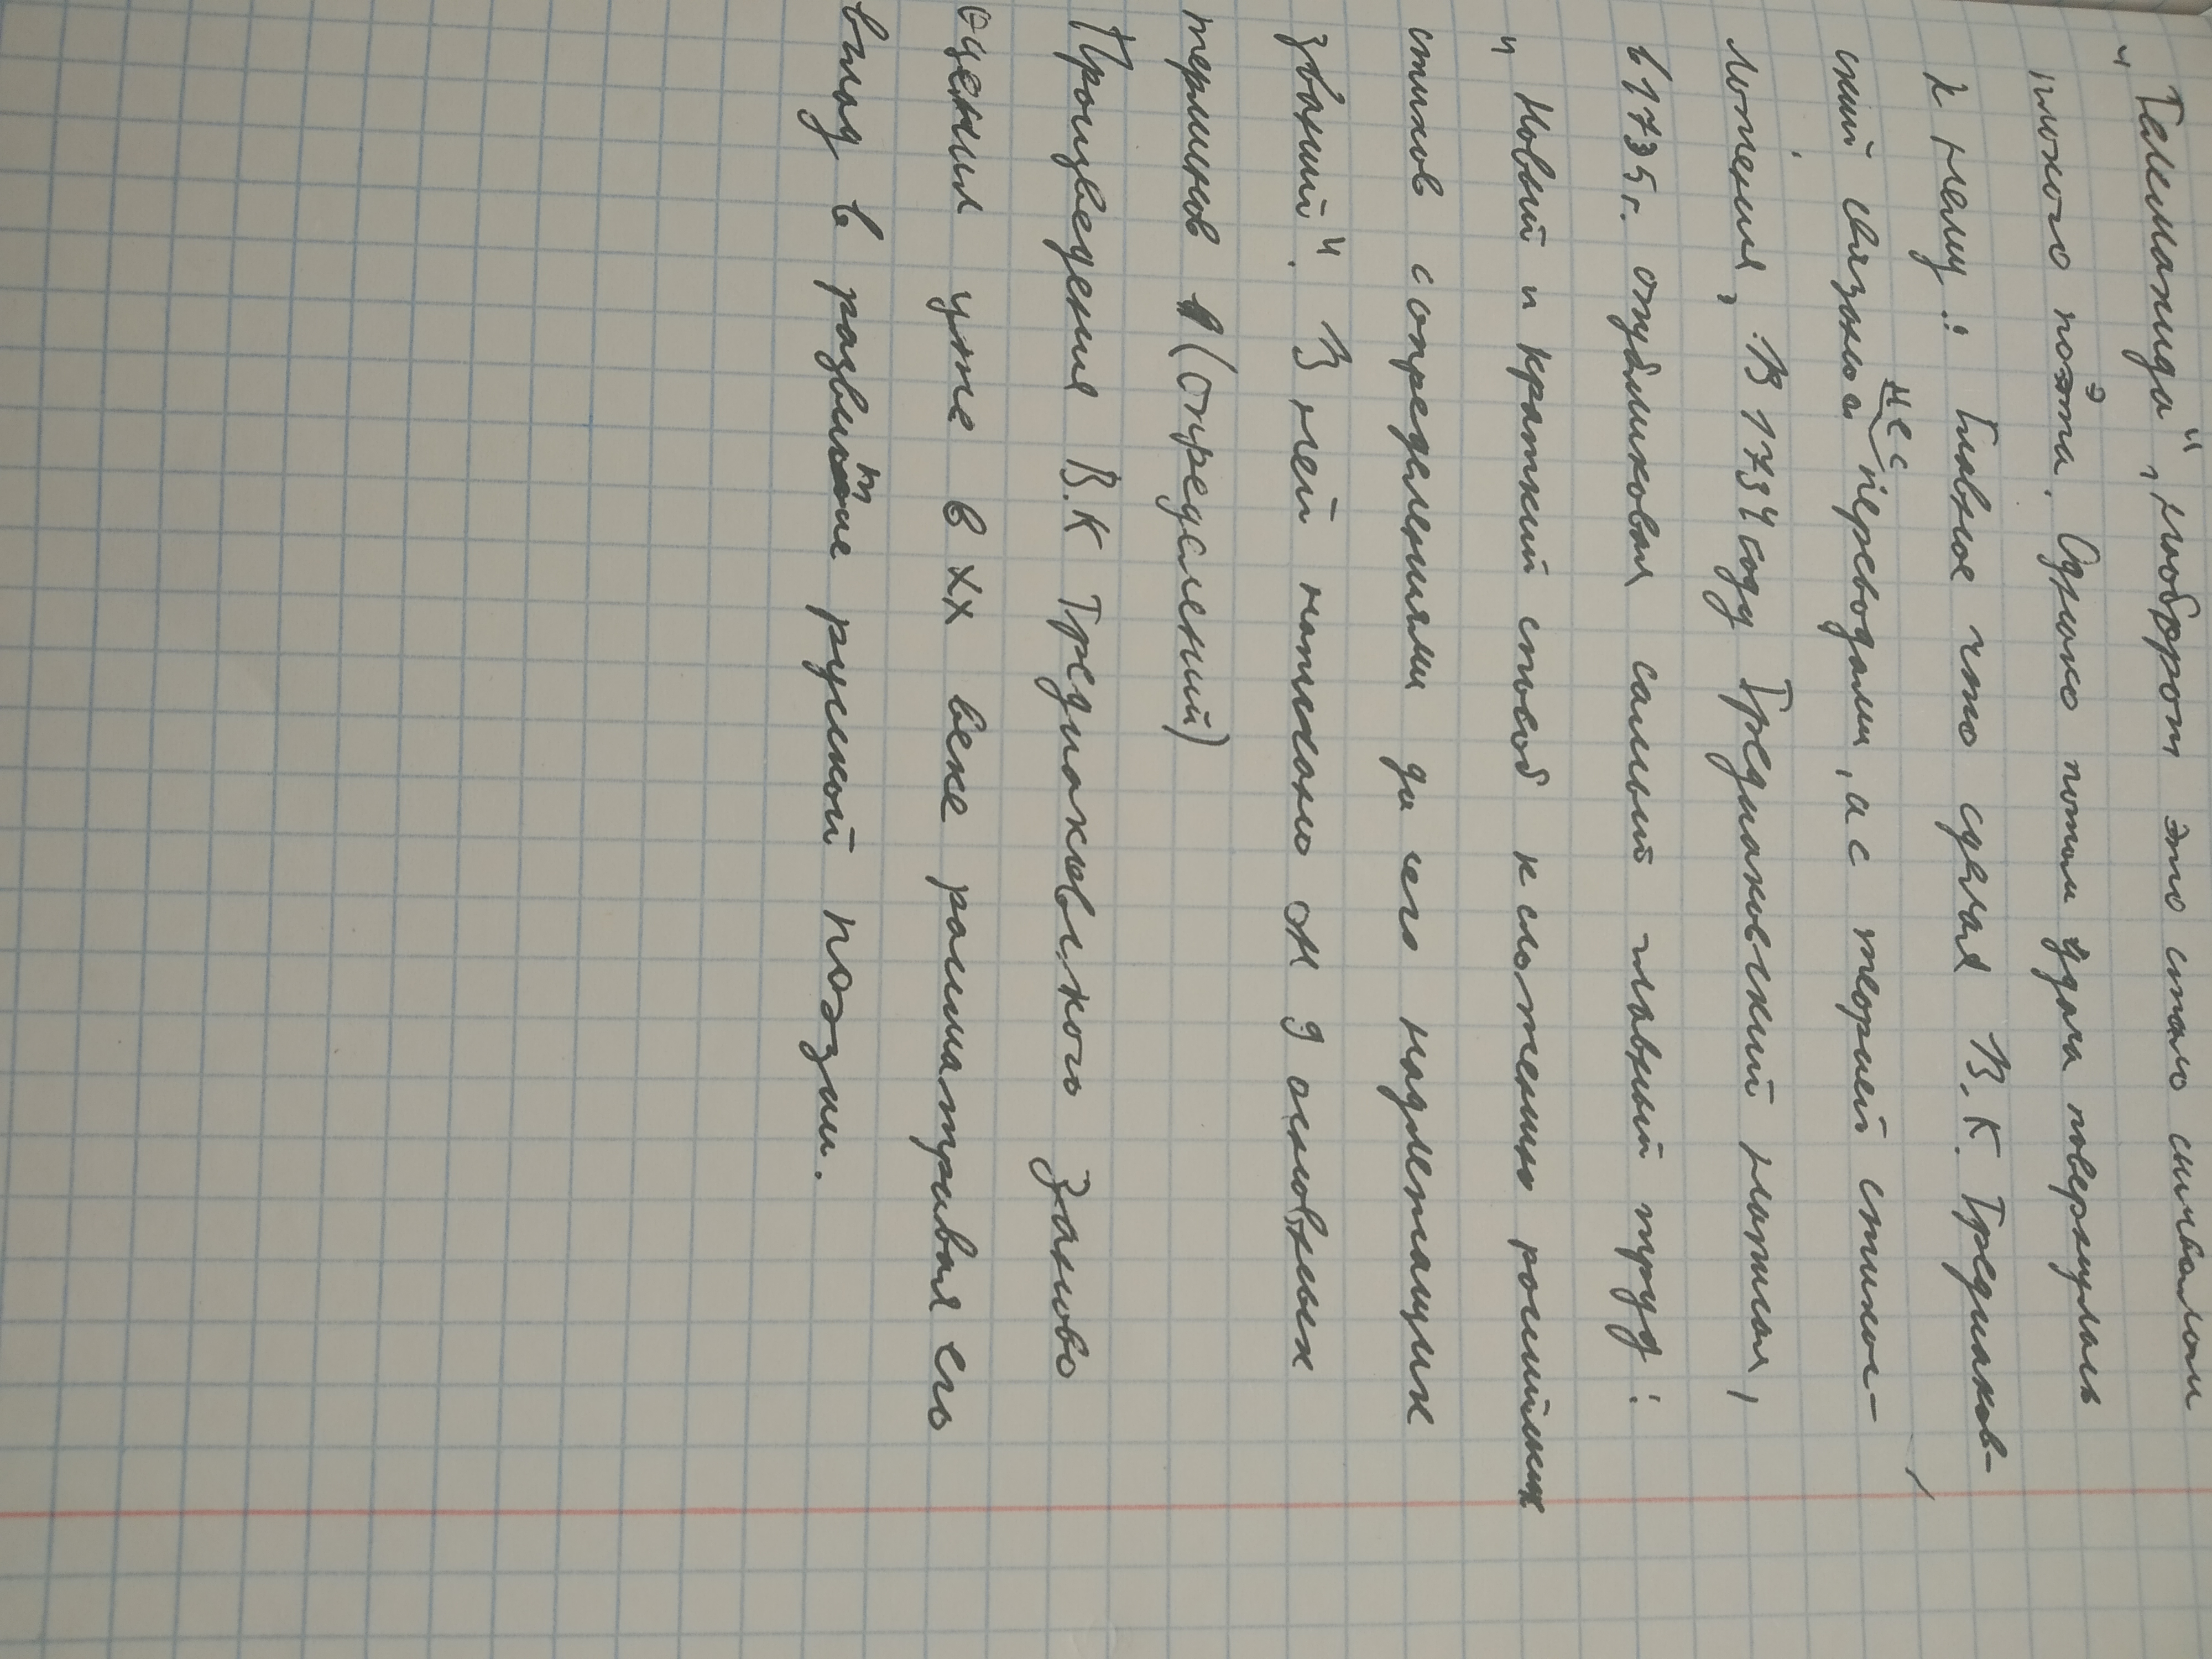 "Телемахида", наоборот это стало символом
плохого поэта. Однако потом удача повернулась
к нему. Главное что сделал В.К. Тредиаков-
ский связано не с переводами, а с теорией стихос-
ложения, В 1734 году Тредиаковский написал,
в 1735 г. опубликовал самый главный труд:
"Новый и краткий способ к сложению российских
стихов с определениями до сего надлежащих
званий". В ней написано он 9 основных
терминов (определений)
Произведения В.К Тредиаковского заново
оценил уже в XX веке рассматривая его
вклад в развитие русской поэзии.